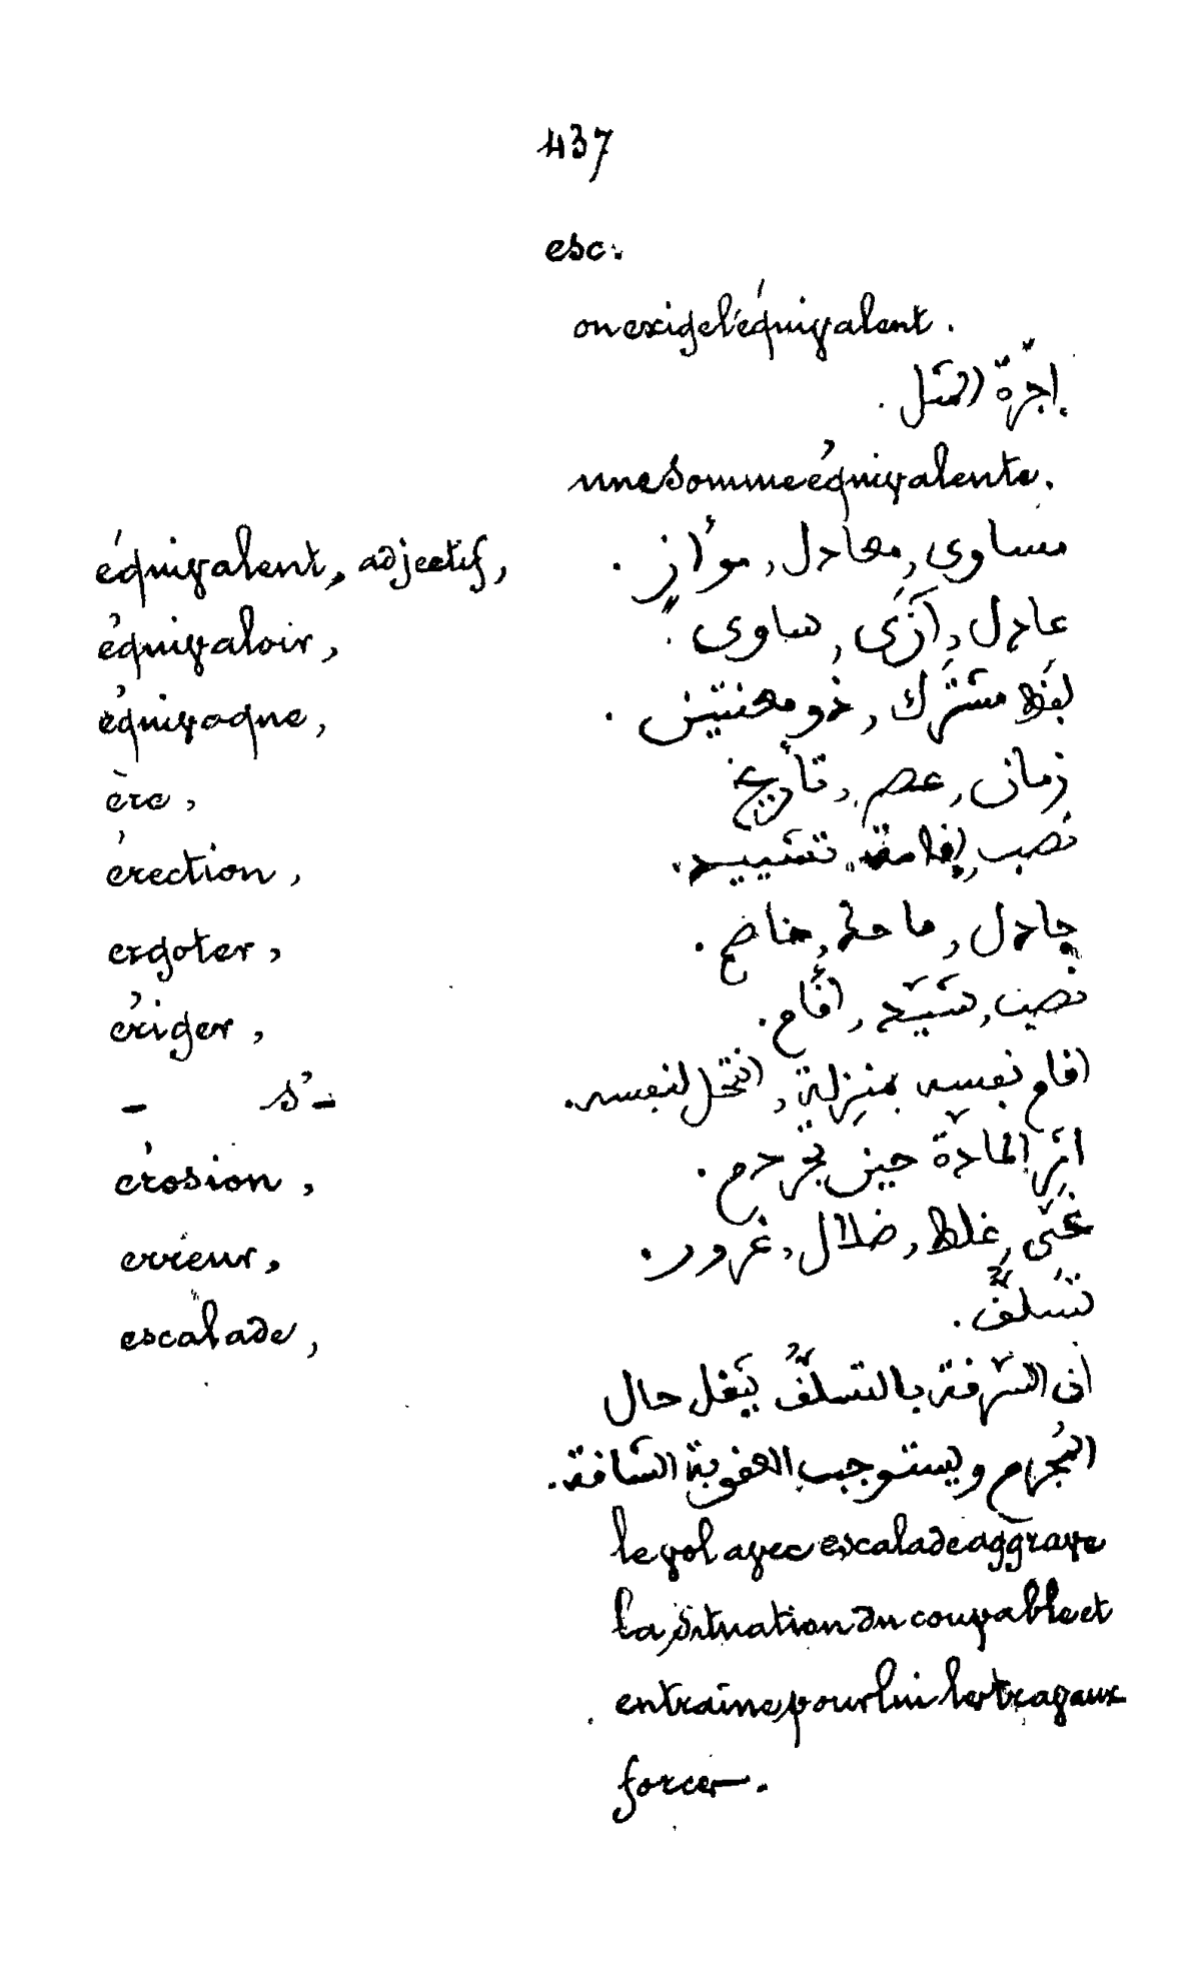 437
esc.
on exige l'équivalent.
اجرّة المثل.
une somme équivalente.
équivalent, adjectif, مساوى, معادل, موأزٍ.
équivaloir, عادل, آزَى, ساوى.
équivoque, لفظ مشترك, ذو معنيين.
ère, زمان, عصر, تأريخ
érection, نصب, إقامة, تشييد.
ergoter, جادل, ماحك, خاصم.
ériger, نصب, شيّد, أقام.
— s'— اقام نفسه بمنزلة, انتحل لنفسه.
érosion, اثر المادّة حين
erreur, غلط, ضلال, غرور.
escalade, تسلّق.
ان السرقة بالتسلّق يثقل حال
المُجرم ويستوجب العقوبة الشاقة.
le vol avec escalade aggrave
la situation du coupable et
entraîne pour lui les travaux
forcés.